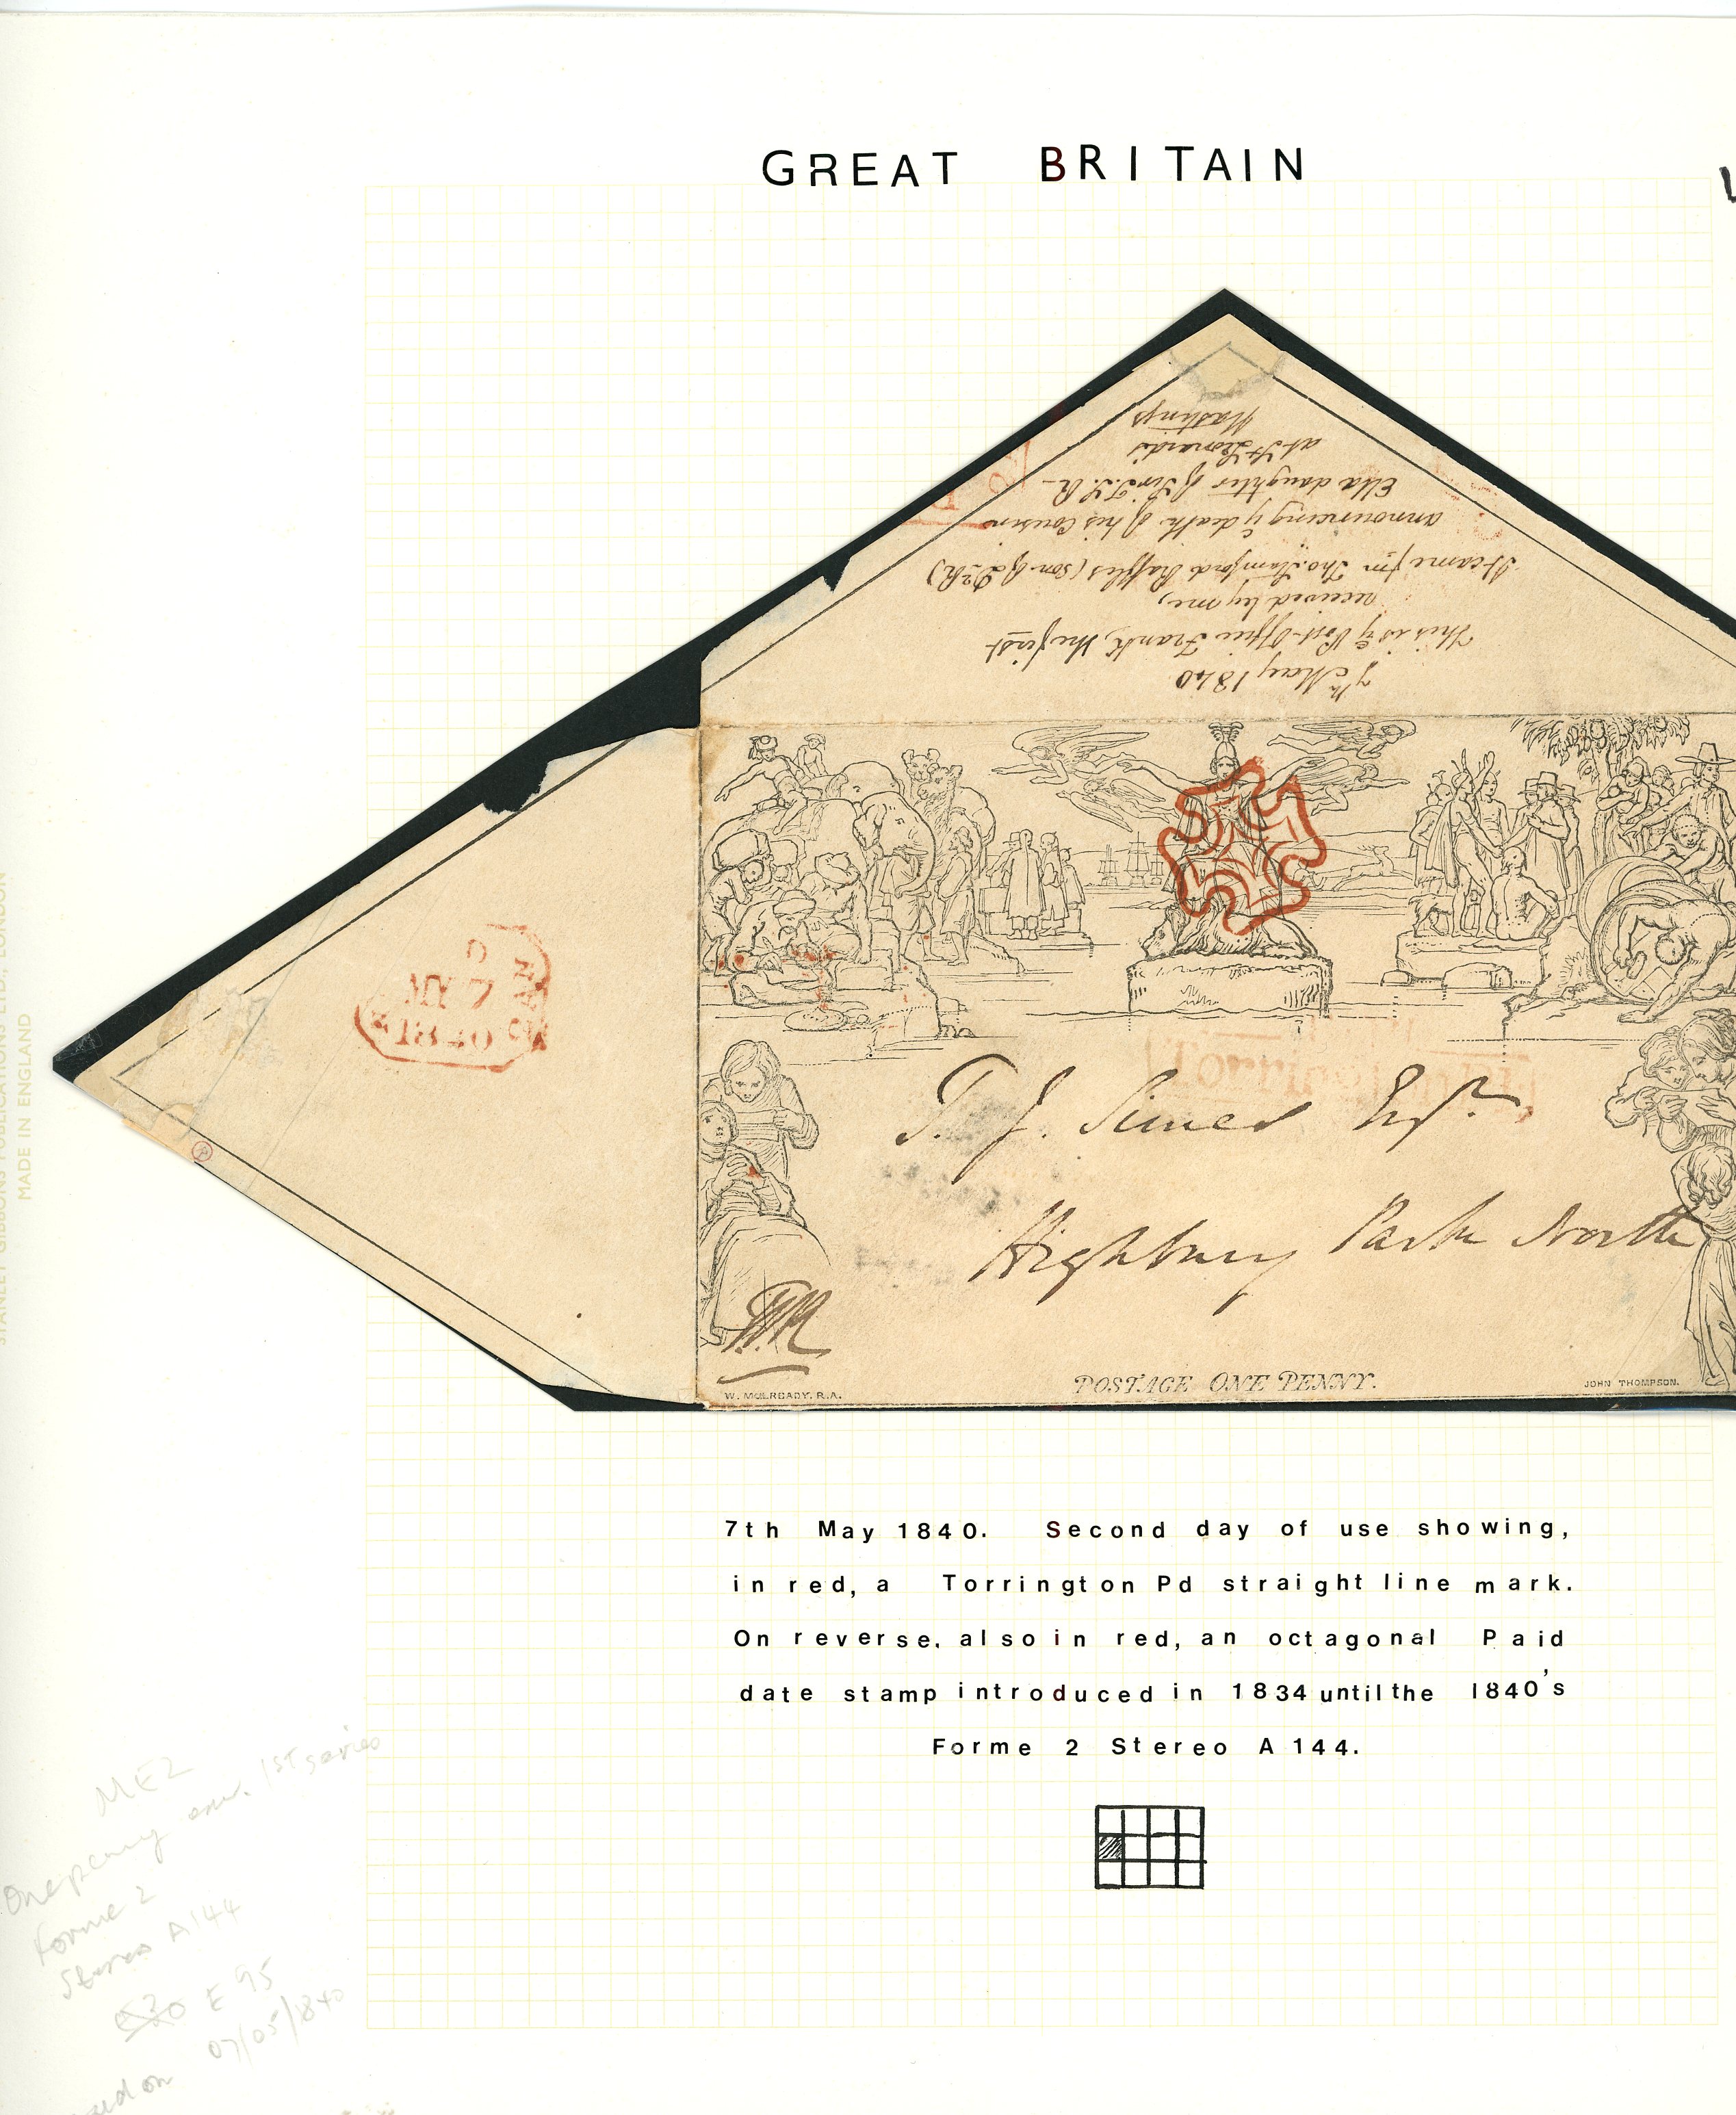 GREAT BRITAIN
7th May 1840
This is ye Post-Office Frank, the first
received by me,
It came fm Tho. Stamford Raffles (son of Dr R)
announcing ye death of his Cousin
Ella daughter of Sir T. S. R-
at St Leonards
Hastings
MY 7
1840
Torrington
T. J. Esqr.
Highbury Park North
W. MULREADY, R.A.
POSTAGE ONE PENNY.
JOHN THOMPSON.
STANLEY GIBBONS PUBLICATIONS LTD., LONDON
MADE IN ENGLAND
7th May 1840. Second day of use showing,
in red, a Torrington Pd straight line mark.
On reverse, also in red, an octagonal Paid
date stamp introduced in 1834 until the 1840's
Forme 2 Stereo A 144.
ME2
One penny env. 1ST series
Forme 2
Stereo A144
E 95
on 07/05/1840